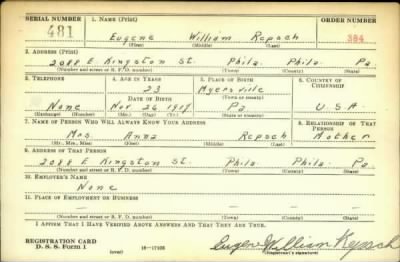 SERIAL NUMBER 1. NAME (Print) ORDER NUMBER
481 Eugene William Repsch 384
(First) (Middle) (Last)
2. ADDRESS (Print)
2088 E Kingston St. Phila Phila Pa
(Number and street or R. F. D. number) (Town) (County) (State)
3. TELEPHONE 4. AGE IN YEARS 5. PLACE OF BIRTH 6. COUNTRY OF CITIZENSHIP
23 Myersville
DATE OF BIRTH (Town or county)
None Nov 26 1917 Pa USA
(Exchange) (Number) (Mo.) (Day) (Yr.) (State or country)
7. NAME OF PERSON WHO WILL ALWAYS KNOW YOUR ADDRESS 8. RELATIONSHIP OF THAT PERSON
Mrs Anna Repsch Mother
(Mr., Mrs., Miss) (First) (Middle) (Last)
9. ADDRESS OF THAT PERSON
2088 E Kingston St. Phila Phila Pa
(Number and street or R. F. D. number) (Town) (County) (State)
10. EMPLOYER'S NAME
None
11. PLACE OF EMPLOYMENT OR BUSINESS
(Number and street or R. F. D. number) (Town) (County) (State)
I AFFIRM THAT I HAVE VERIFIED ABOVE ANSWERS AND THAT THEY ARE TRUE.
REGISTRATION CARD
D. S. S. Form 1 (over) 16—17105 Eugene William Repsch
(Registrant's signature)